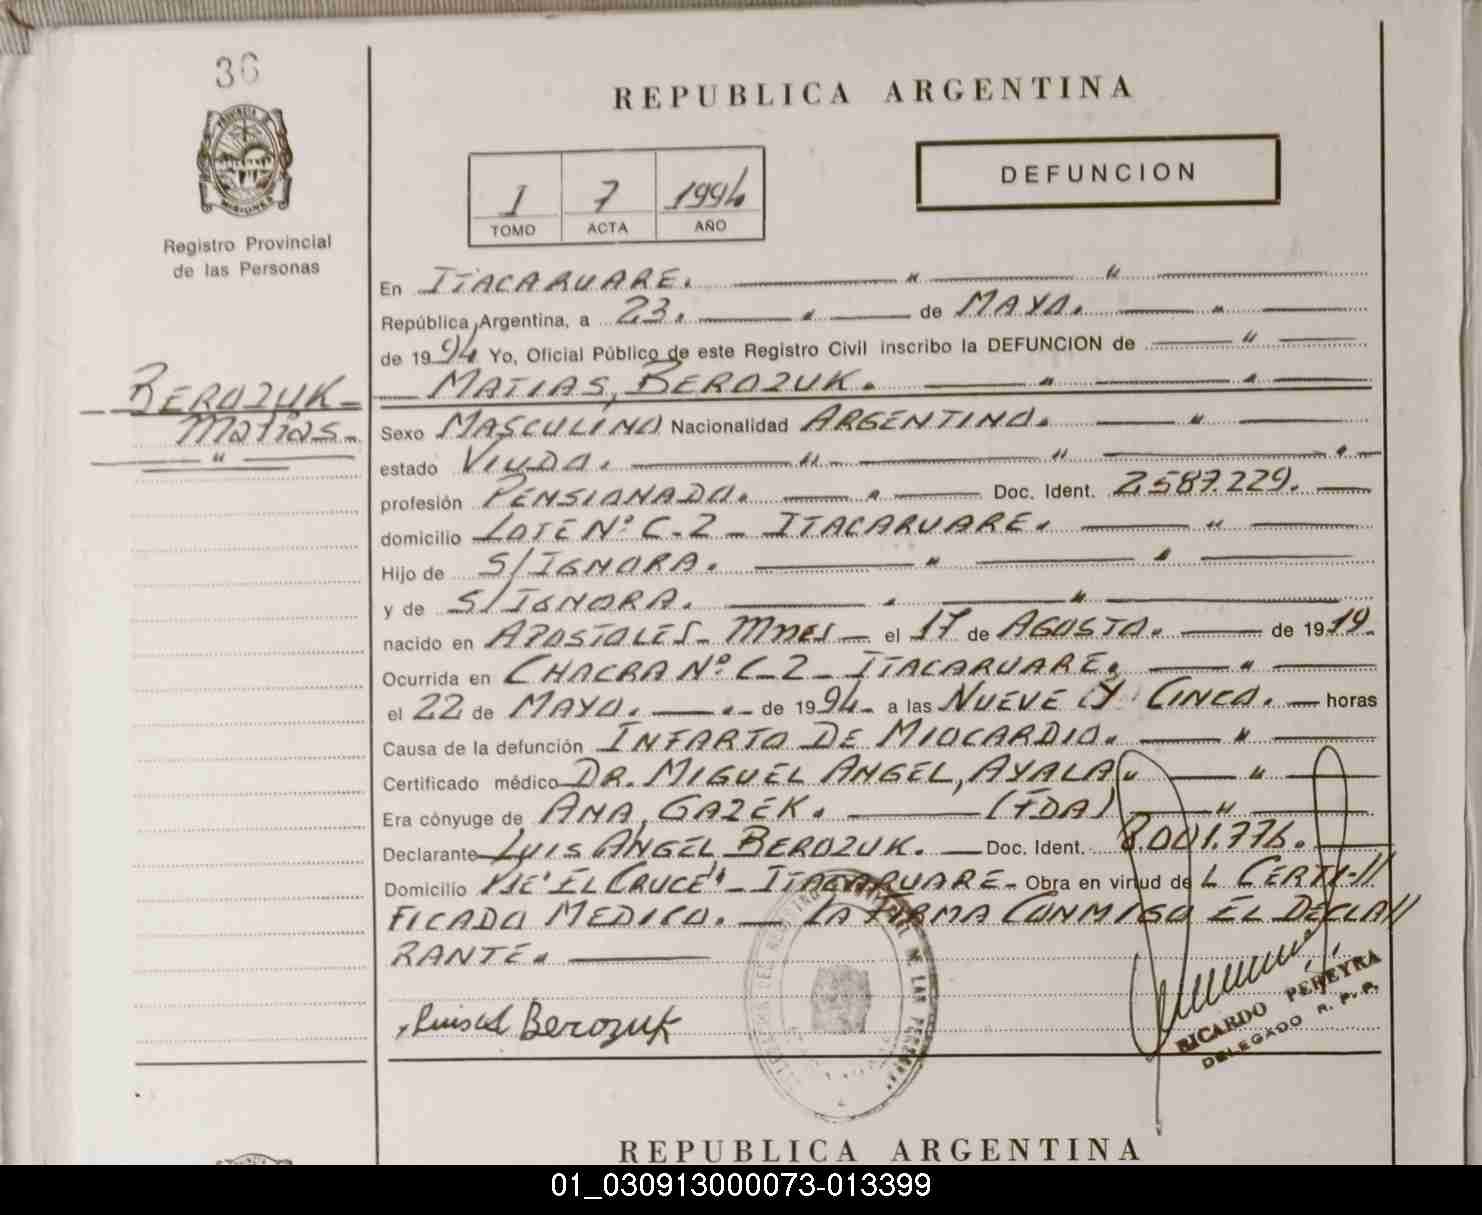 36
REPUBLICA ARGENTINA
PROVINCIA DE MISIONES
Registro Provincial
de las Personas
DEFUNCION
I 7 1994
TOMO ACTA AÑO
BEROZUK-
Matias.-
En ITACARUARE.
República Argentina, a 23. de MAYO.
de 1994 Yo, Oficial Público de este Registro Civil inscribo la DEFUNCION de
MATIAS, BEROZUK.
Sexo MASCULINO Nacionalidad ARGENTINO.
estado VIUDO.
profesión PENSIONADO. Doc. Ident. 2.587.229.
domicilio LOTE Nº C-2 - ITACARUARE.
Hijo de S/IGNORA.
y de S/IGNORA.
nacido en APOSTOLES- Mnes- el 17 de AGOSTO. de 1919.
Ocurrida en CHACRA Nº C-2 - ITACARUARE.
el 22 de MAYO. de 1994- a las NUEVE Y CINCO. horas
Causa de la defunción INFARTO DE MIOCARDIO.
Certificado médico DR. MIGUEL ANGEL, AYALA.
Era cónyuge de ANA, GAZEK. (FDA)
Declarante LUIS ANGEL BEROZUK. Doc. Ident. 8.001.776.
Domicilio PJE "EL CRUCE" - ITACARUARE- Obra en virtud de L CERTI-//
FICADO MEDICO. - LA FIRMA CONMIGO EL DECLA//
RANTE.
Berozuk
RICARDO PEREYRA
DELEGADO R. P. P.
REPUBLICA ARGENTINA
01_030913000073-013399